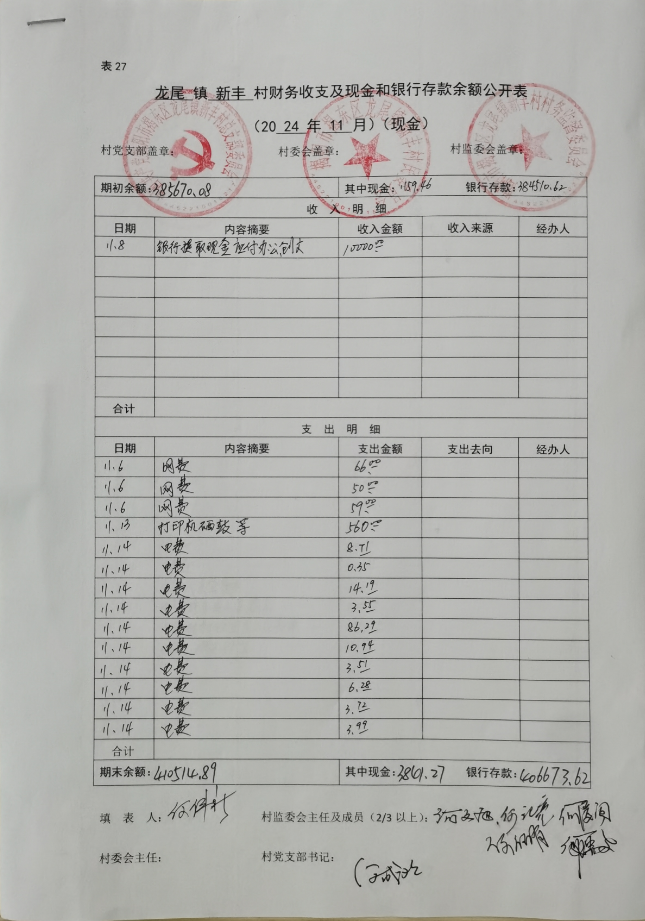 表 27
龙尾 镇 新丰 村财务收支及现金和银行存款余额公开表
(20 24 年 11 月)(现金)
村党支部盖章: 村委会盖章: 村监委会盖章:
期初余额:385670.08 其中现金:1159.46 银行存款:384510.62
收 入 明 细
日期 内容摘要 收入金额 收入来源 经办人
11.8 银行提取现金应付办公刽支 10000.00
合计
支 出 明 细
日期 内容摘要 支出金额 支出去向 经办人
11.6 网费 66.00
11.6 网费 50.00
11.6 网费 59.00
11.13 打印机硒鼓等 560.00
11.14 电费 8.71
11.14 电费 0.35
11.14 电费 14.19
11.14 电费 3.55
11.14 电费 86.29
11.14 电费 10.94
11.14 电费 3.51
11.14 电费 6.28
11.14 电费 3.72
11.14 电费 3.99
合计
期末余额:410514.89 其中现金:3841.27 银行存款:406673.62
填 表 人: 村监委会主任及成员(2/3 以上):
村委会主任: 村党支部书记: